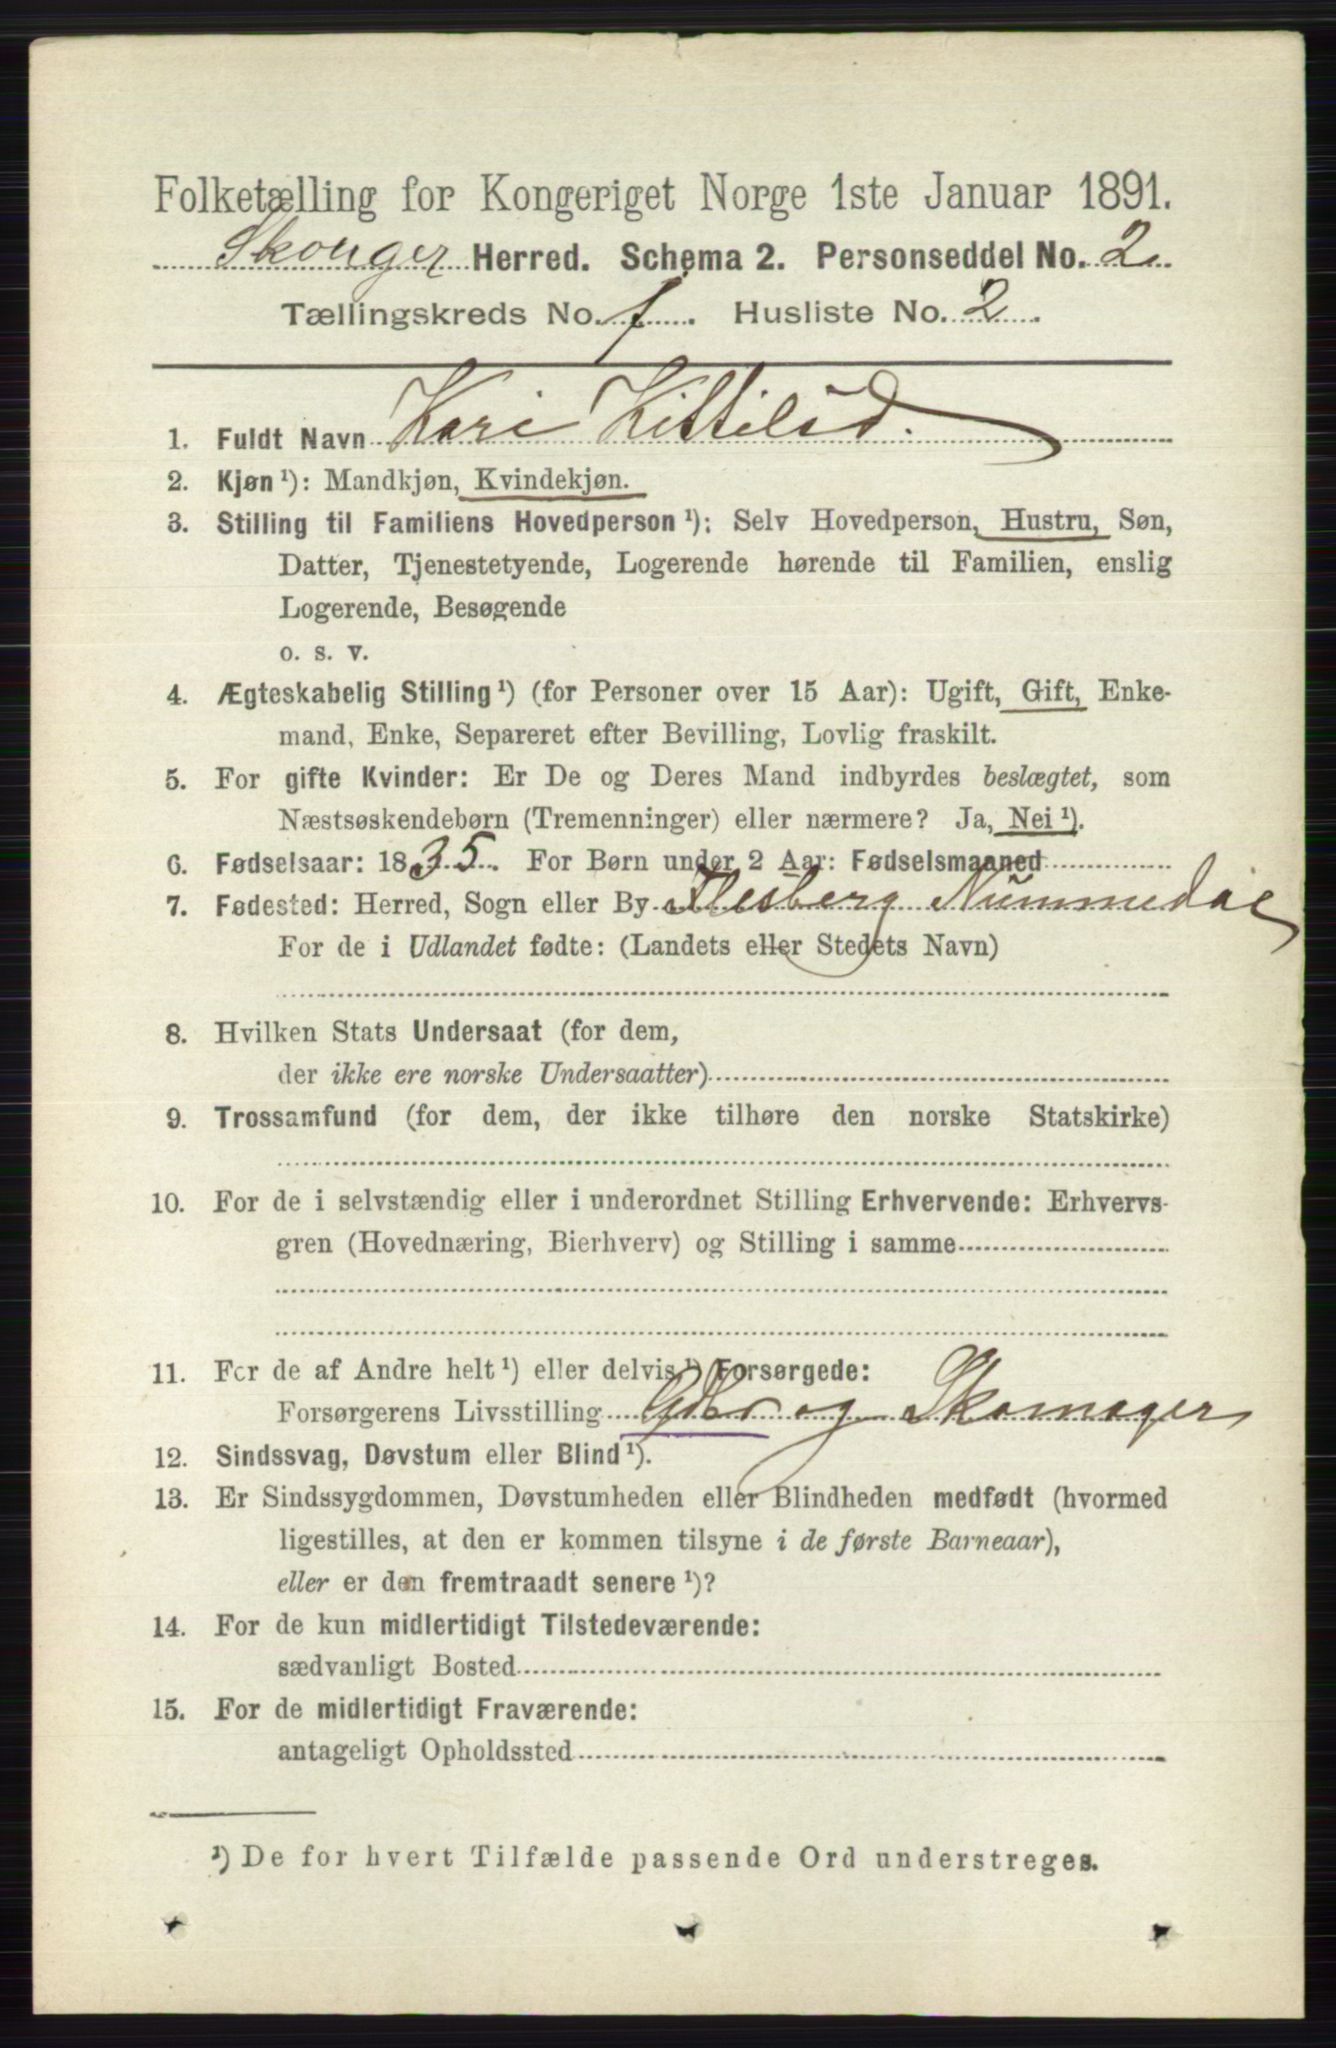 Folketælling for Kongeriget Norge 1ste Januar 1891.
Skouger Herred. Schema 2. Personseddel No. 2
Tællingskreds No. 1. Husliste No. 2.
1. Fuldt Navn Kari Kittilsd.
2. Kjøn ¹): Mandkjøn, Kvindekjøn.
3. Stilling til Familiens Hovedperson ¹): Selv Hovedperson, Hustru, Søn,
Datter, Tjenestetyende, Logerende hørende til Familien, enslig
Logerende, Besøgende
o. s. v.
4. Ægteskabelig Stilling ¹) (for Personer over 15 Aar): Ugift, Gift, Enke-
mand, Enke, Separeret efter Bevilling, Lovlig fraskilt.
5. For gifte Kvinder: Er De og Deres Mand indbyrdes beslægtet, som
Næstsøskendebørn (Tremenninger) eller nærmere? Ja, Nei ¹).
6. Fødselsaar: 1835. For Børn under 2 Aar: Fødselsmaaned
7. Fødested: Herred, Sogn eller By Flesberg Nummedal
For de i Udlandet fødte: (Landets eller Stedets Navn)
8. Hvilken Stats Undersaat (for dem,
der ikke ere norske Undersaatter)
9. Trossamfund (for dem, der ikke tilhøre den norske Statskirke)
10. For de i selvstændig eller i underordnet Stilling Erhvervende: Erhvervs-
gren (Hovednæring, Bierhverv) og Stilling i samme
11. For de af Andre helt ¹) eller delvis ¹) Forsørgede:
Forsørgerens Livsstilling Gdbr og Skomager
12. Sindssvag, Døvstum eller Blind ¹).
13. Er Sindssygdommen, Døvstumheden eller Blindheden medfødt (hvormed
ligestilles, at den er kommen tilsyne i de første Barneaar),
eller er den fremtraadt senere ¹)?
14. For de kun midlertidigt Tilstedeværende:
sædvanligt Bosted
15. For de midlertidigt Fraværende:
antageligt Opholdssted
¹) De for hvert Tilfælde passende Ord understreges.